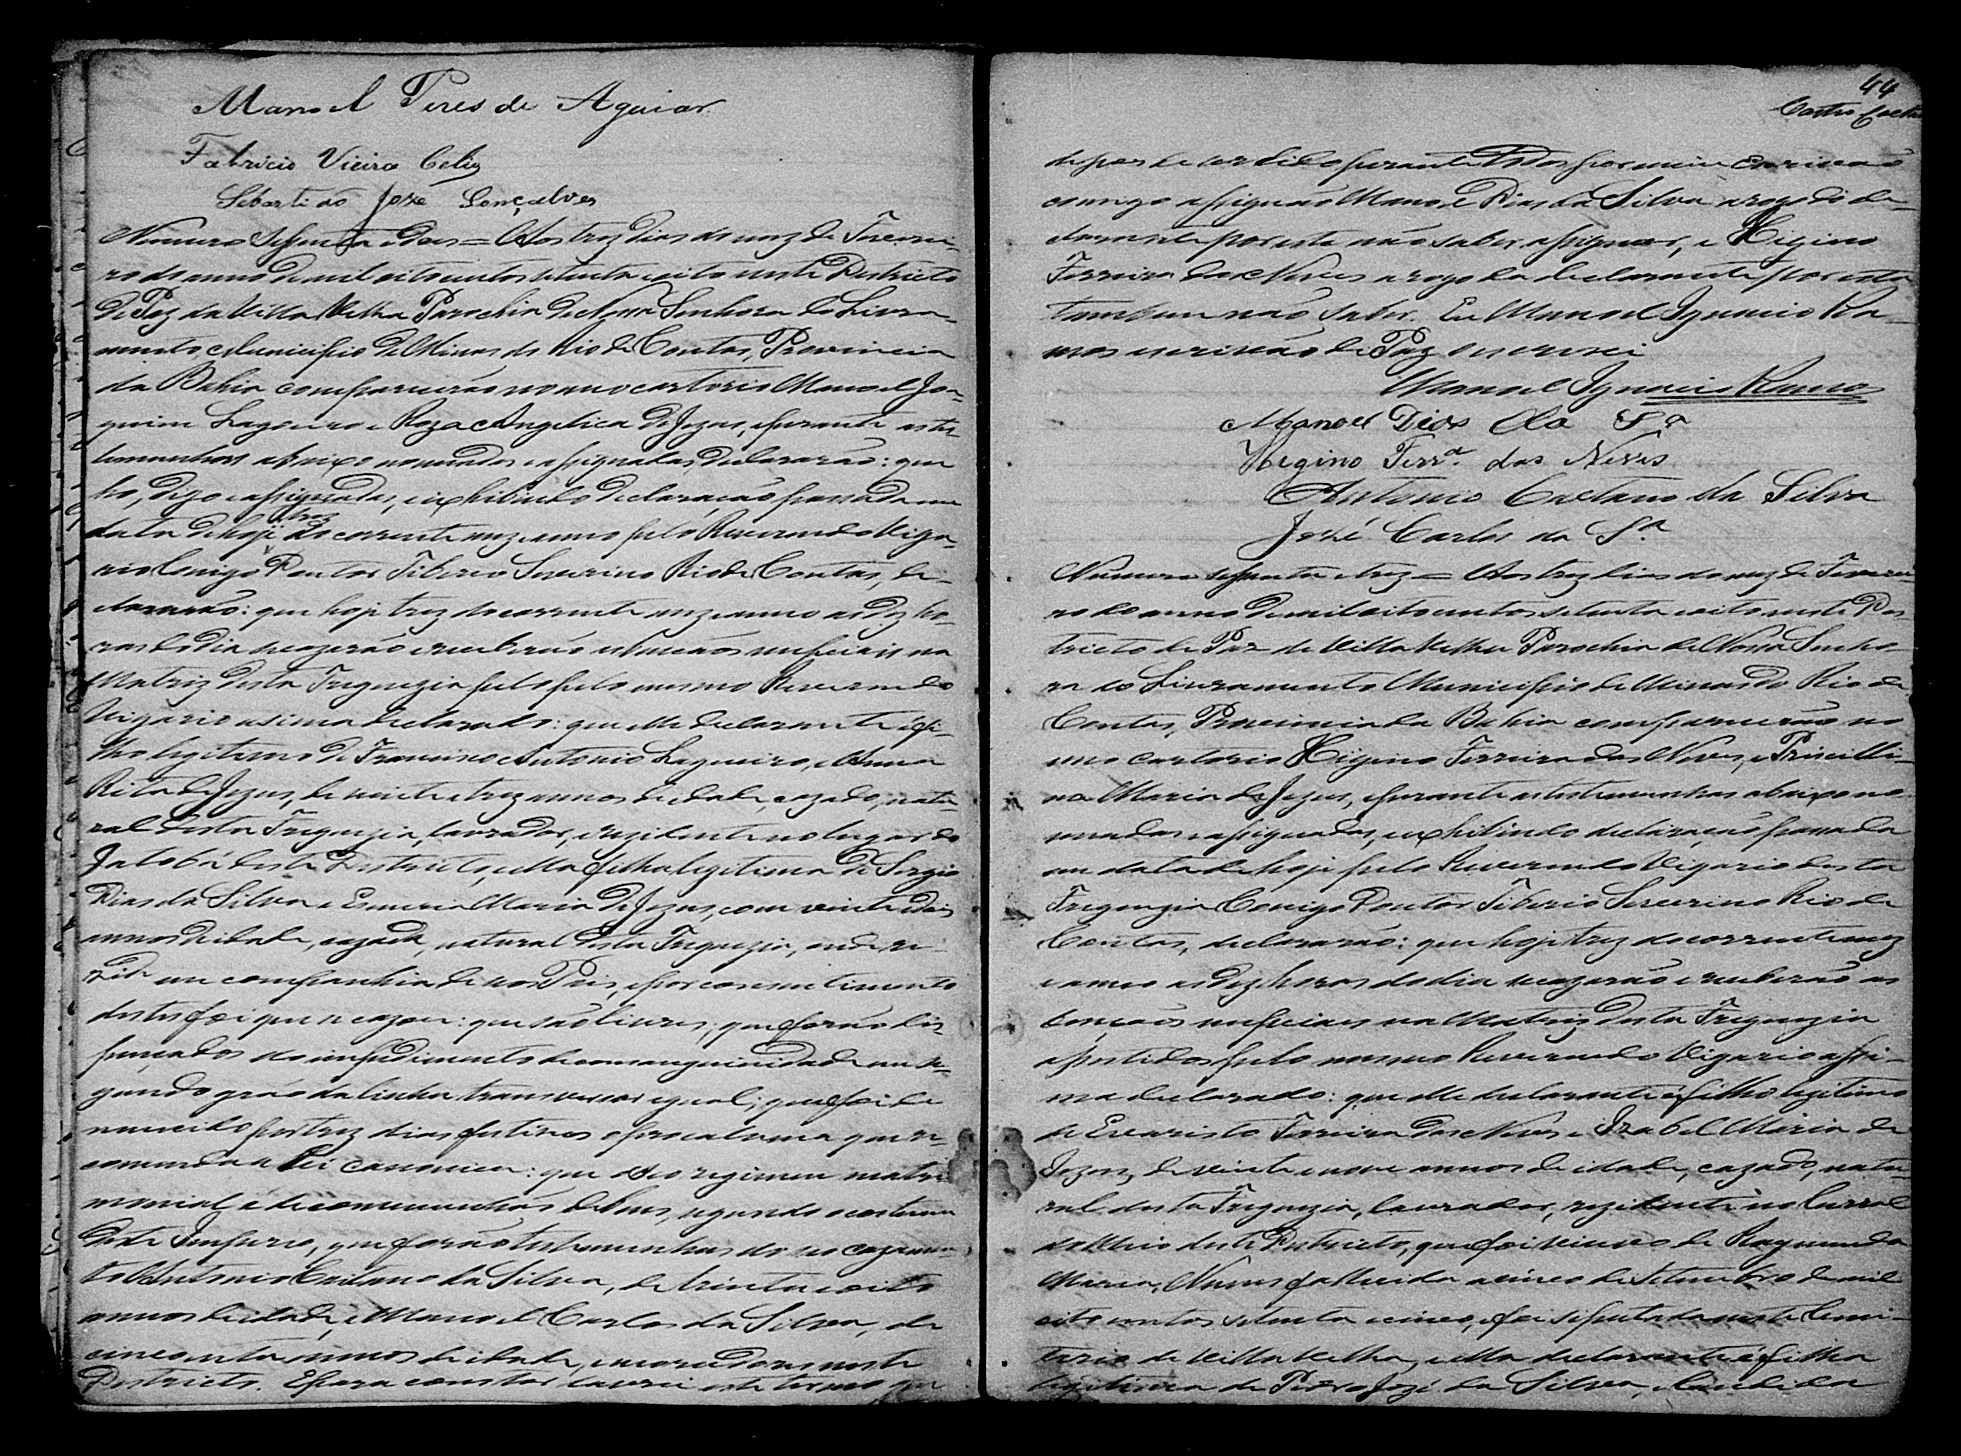 Manoel Pires de Aguiar
Fabricio Vieira Celis
Sebastião Jose Gonçalves
Numero Sessenta e dous = Aos trez dias do mez de Feverei-
ro do anno de mil oito centos setenta e oito neste Districto
de Paz da Villa Velha Parochia de Nossa Senhora do Livra-
mento Municipio de Minas do Rio de Contas, Provincia
da Bahia comparecerão no meo cartorio Manoel Jo-
quim Lageiro e Roza Angelica de Jezus, e perante as tes-
temunhas abaixo nomeadas e assignadas declararão: que
ho, digo e assignadas, e exhibindo declaração passada em
data de hoje tres do corrente mez e anno pelo Reverendo Viga-
rio Conigo Doutor Tiberio Severino Rio de Contas, de-
clararão: que hoje trez do corrente mez e anno as dez ho-
ras do dia se cazarão e receberão as bençãos nupciais na
Matriz desta Freguezia pelo pelo mesmo Reverendo
Vigario asima declarado: que elle declarante é fi-
lho legitimo de Francisco Antonio Lageiro, e Anna
Rita de Jezus, de vinte e trez annos de idade, cazado, natu-
ral desta Freguezia, lavrador, rezidente no lugar do
Jatobá deste Districto, e ella filha legitima de Sergio
Dias da Silva e Esmeria Maria de Jezus, com vinte e dois
annos de idade, cazada, natural desta Freguezia, onde re-
zide em companhia de seos Pais, e por consentimento
destes foi que se cazou: que são livres; que forão dis-
pensados do impedimento de consanguinidade em se-
gundo gráo da linha transversal igual; que foi de
nunciado por trez dias festivos e proclama que re-
comenda a Lei canonica: que o seo regimen matri-
monial, é de communhão de bens, segundo o costume
deste Imperio, que forão testemunhas do seo cazamen-
to Antonio Caetano da Silva, de trinta e oito
annos de idade, e Manoel Carlos da Silva, de
cincoenta annos de idade, e moradores neste
Districto. E para constar lavrei este termo que
44
Castro Caeta
depois de ser lido perante todos por mim Escrivão
comigo assignão Manoel Dias da Silva a rogo do de-
clarante por este não saber assignar, e Higino
Ferreira das Neves a rogo da declarante por esta
tambem não saber. Eu Manoel Ignacio Ra-
mos escrivão de Paz o escrevi
Manoel Ignacio Ramos
Manoel Dias da Sª
Hegino Ferrª. das Neves
Antonio Caetano da Silva
José Carlos da Sª
Numero sessenta e trez = Aos trez dias do mez de Feverei
ro do anno de mil oito centos setenta e oito neste Des
tricto de Paz da Villa Velha Parochia de Nossa Senho
ra do Livramento Municipio de Minas do Rio de
Contas, Provincia da Bahia comparecerão no
meo cartorio Higino Ferreira das Neves, e Priscilli-
na Maria de Jezus, e perante as testemunhas abaixo no
meadas e assignadas, e exhibindo declaração passada
em data de hoje pelo Reverendo Vigario desta
Freguezia Conigo Doutor Tiberio Severino Rio de
Contas, declararão: que hoje trez do corrente mez
e anno as dez horas do dia se cazarão e receberão as
bençãos nupciaes na Matriz desta Freguezia
pelo mesmo Reverendo Vigario assi-
ma declarado: que elle declarante é filho legitimo
de Evaristo Ferreira das Neves e Izabel Maria de
Jezus, de vinte e nove annos de idade, cazado, natu-
ral desta Freguezia, lavrador, rezidente no Curral
do Meio deste Districto, que foi viuvo de Raymunda
Maria Neves fallecida a cinco de Setembro de mil
oito centos setenta e cinco, e foi sepultada neste Cemi-
terio de Villa Velha, e ella declarante é filha
legitima de Pedro José da Silva, e Candida